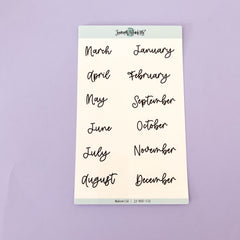 March January
April February
May September
June October
July November
August December